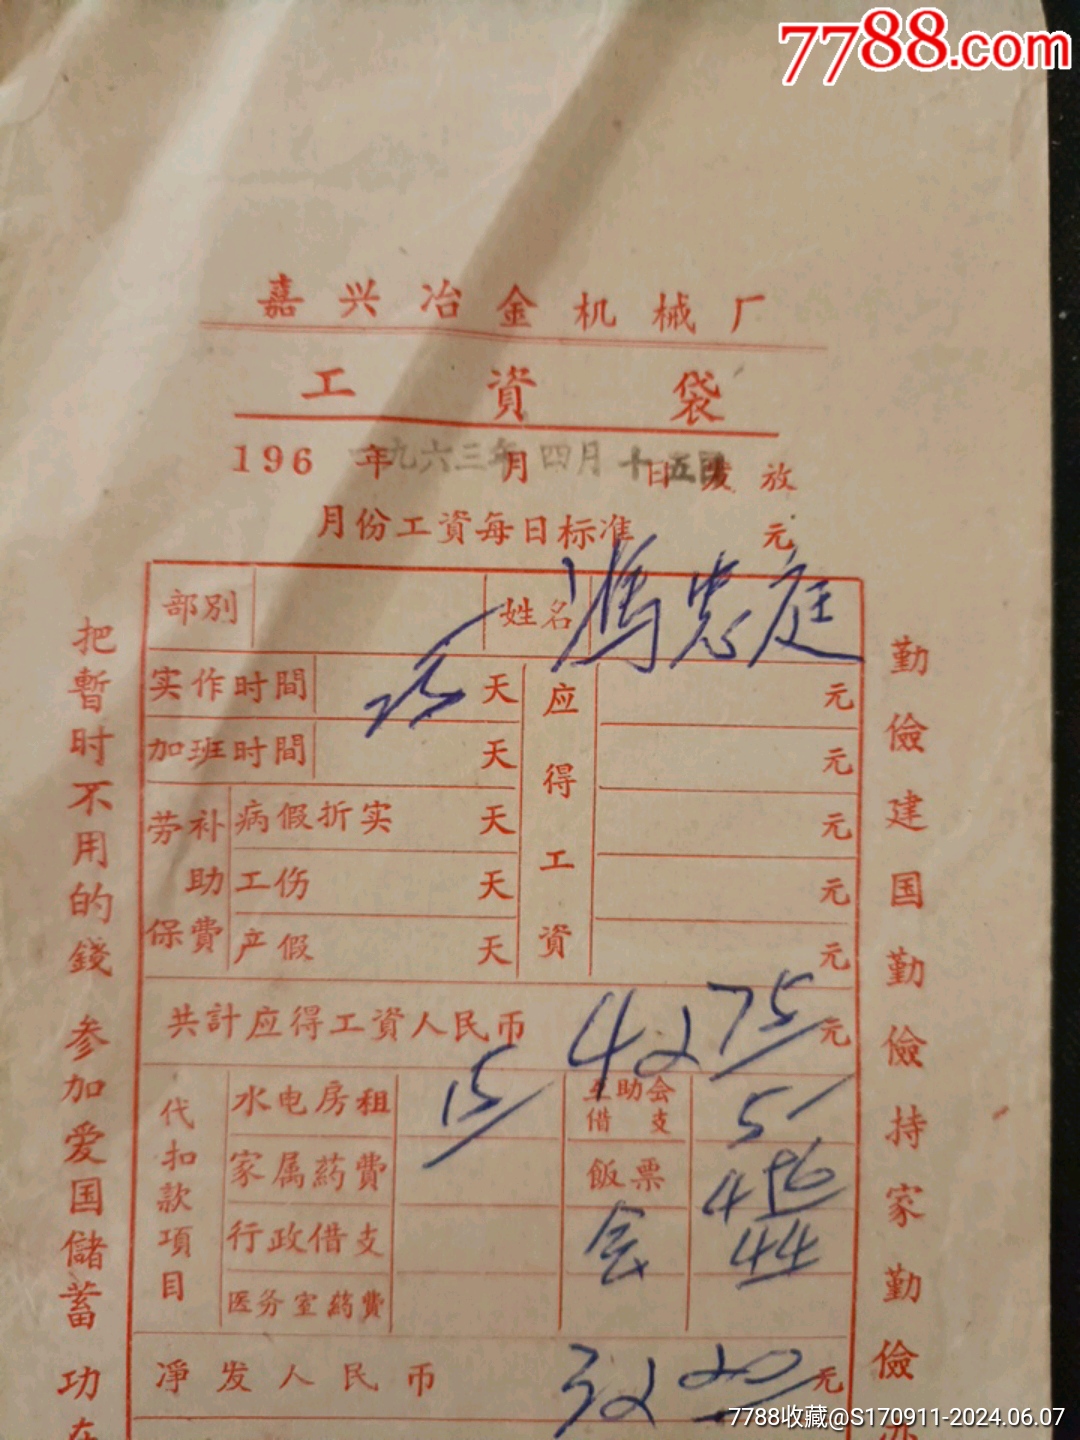 7788.com
嘉兴冶金机械厂
工資袋
196 年 月 日发放
一九六三年四月十五日
月份工資每日标准 元
部別 姓名 馮忠庭
实作时間 25 天 应得工資 元
加班时間 天 元
劳保补助費 病假折实 天 元
工伤 天 元
产假 天 元
共計应得工資人民币 42 75 元
代扣款項目 水电房租 15 互助会借支 5
家属药費 飯票 4 96
行政借支 会 44
医务室药費
净发人民币 32 20 元
把暂时不用的錢 参加爱国儲蓄 功在
勤儉建国勤儉持家勤儉办
7788收藏@S170911-2024.06.07